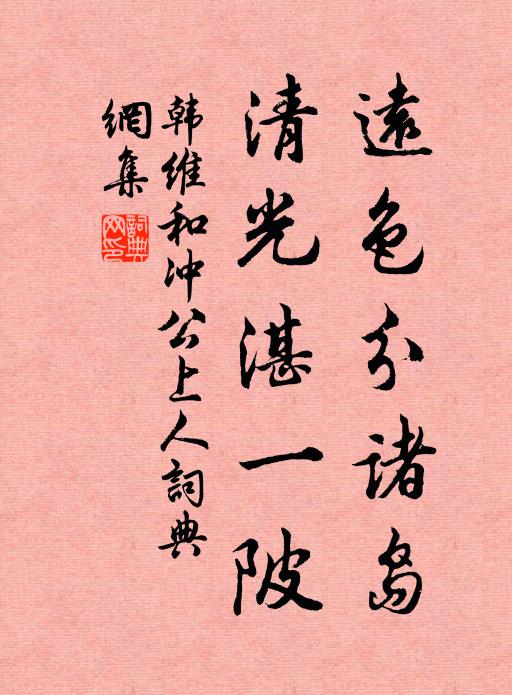 遠色分諸島
清光湛一陂
韩維和冲公上人詞典
網集
詞典
网印